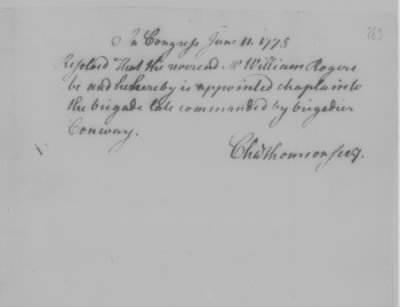 In Congress June 11. 1778
Resolved That the reverend Mr William Rogers
be and he hereby is appointed chaplain to
the brigade late commanded by brigadier
Conway.
Chas Thomson secy.
263